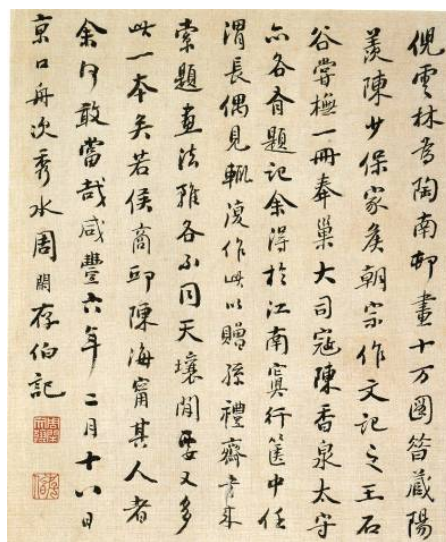 倪雲林為陶南邨畫十万圖昝藏陽
羨陳少保家矦朝宗作文記之王石
谷嘗橅一冊奉巢大司寇陳香泉太守
亦各有題記余得於江南寘行篋中任
渭長偶見輒復作此以贈孫禮齋書來
索題畫法雖各不同天壤閒要又多
此一本矣若侯商邱陳海甯其人者
余何敢當哉咸豐六年二月十八日
京口舟次秀水周閑存伯記